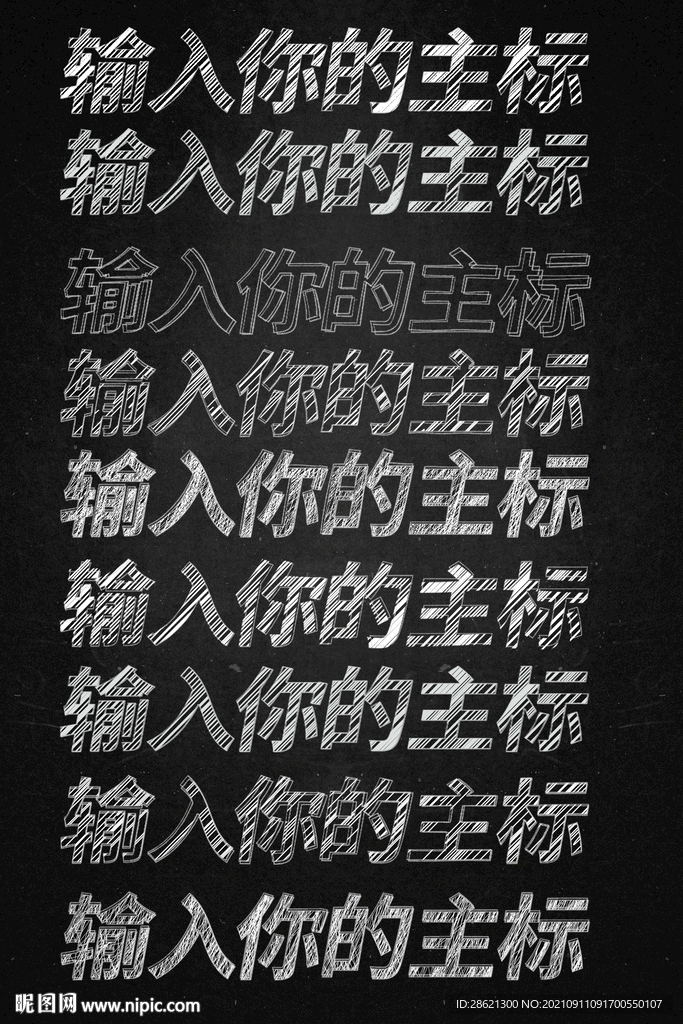 输入你的主标
输入你的主标
输入你的主标
输入你的主标
输入你的主标
输入你的主标
输入你的主标
输入你的主标
输入你的主标
昵图网 www.nipic.com ID:28621300 NO:20210911091700550107